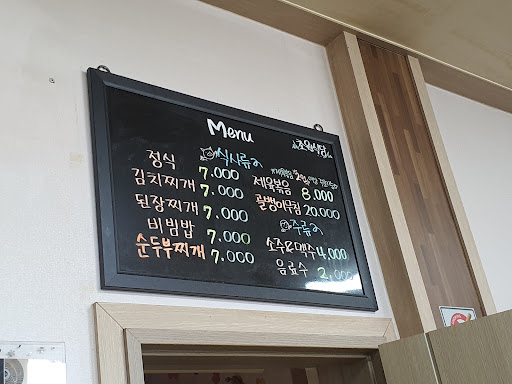 Menu
초원식당
식사류
정식 7,000
김치찌개 7,000
된장찌개 7,000
비빔밥 7,000
순두부찌개 7,000
제육볶음 8,000
골뱅이무침 20,000
주류
소주&맥주 4,000
음료수 2,000